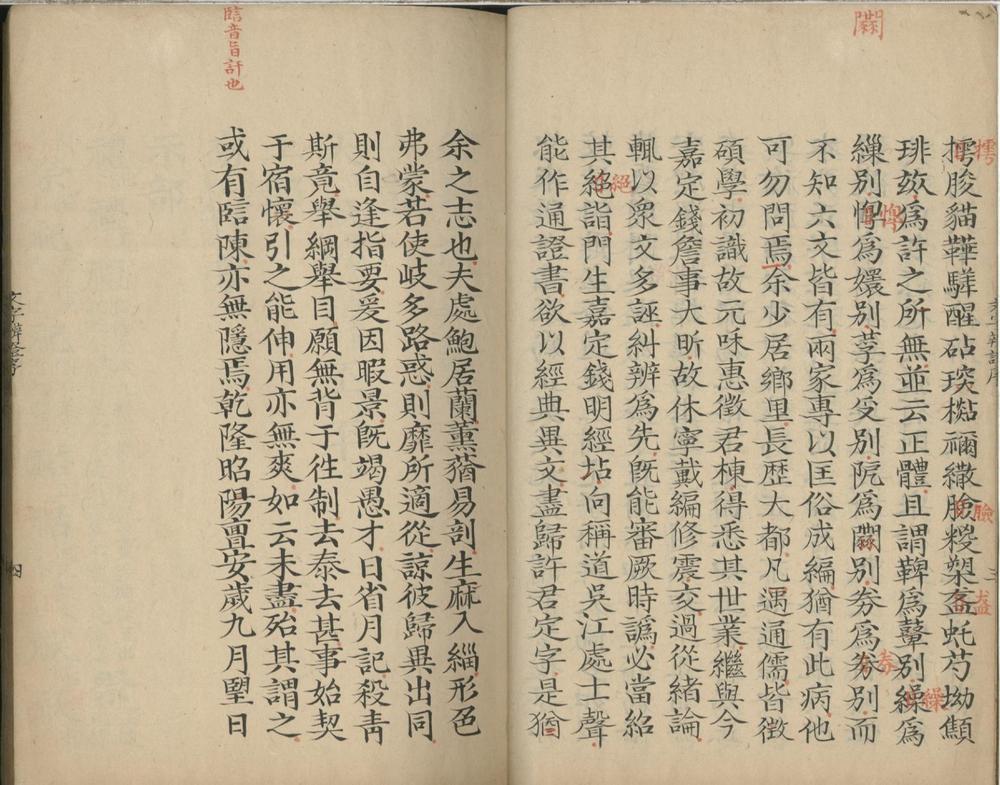 闕
擩朘貓鞾騂醒砧琰檆禰繖臉糉槊盔虬芍坳顯
琲玅為許之所無並云正體且謂鞞為鼙別繰為
繅別㥜為嬛別荢為受別阮為闕別劵為券別而
不知六文皆有兩家專以匡俗成編猶有此病他
可勿問焉余少居鄉里長歷大都凡遇通儒皆徵
碩學初識故元和惠徵君棟得悉其世業繼與今
嘉定錢詹事大昕故休寧戴編修震交過從緒論
輒以衆文多誣糾辨為先既能審厥時譌必當紹
其絕詣門生嘉定錢明經坫向稱道吳江處士聲
能作通證書欲以經典異文盡歸許君定字是猶
余之志也夫處鮑居蘭薰蕕易剖生麻入緇形色
弗蒙若使岐多路惑則靡所適從諒彼歸異出同
則自逢指要爰因暇景既竭愚才日省月記殺青
斯竟舉綱舉目願無背于徃制去泰去甚事始契
于宿懷引之能伸用亦無爽如云未盡殆其謂之
或有䀡陳亦無隱焉乾隆昭陽亶安歲九月朢日
䀡音旨訐也
文字辨證序
四